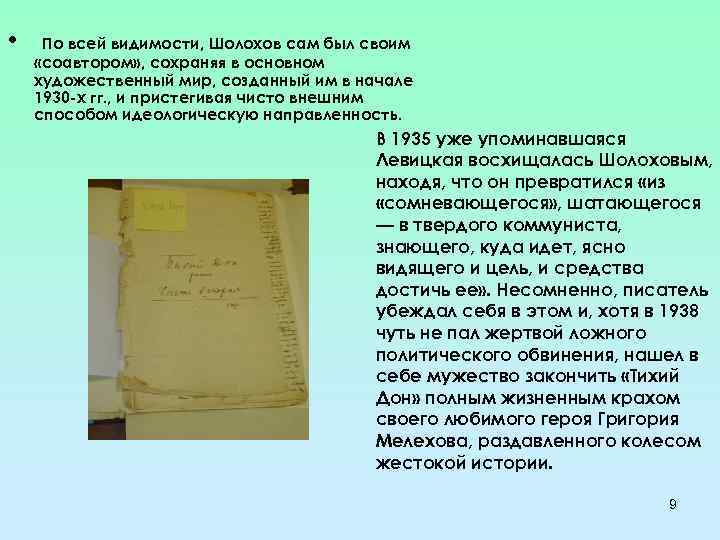 • По всей видимости, Шолохов сам был своим
«соавтором», сохраняя в основном
художественный мир, созданный им в начале
1930-х гг., и пристегивая чисто внешним
способом идеологическую направленность.
В 1935 уже упоминавшаяся
Левицкая восхищалась Шолоховым,
находя, что он превратился «из
«сомневающегося», шатающегося
— в твердого коммуниста,
знающего, куда идет, ясно
видящего и цель, и средства
достичь ее». Несомненно, писатель
убеждал себя в этом и, хотя в 1938
чуть не пал жертвой ложного
политического обвинения, нашел в
себе мужество закончить «Тихий
Дон» полным жизненным крахом
своего любимого героя Григория
Мелехова, раздавленного колесом
жестокой истории.
Тихий Дон
Часть вторая
9